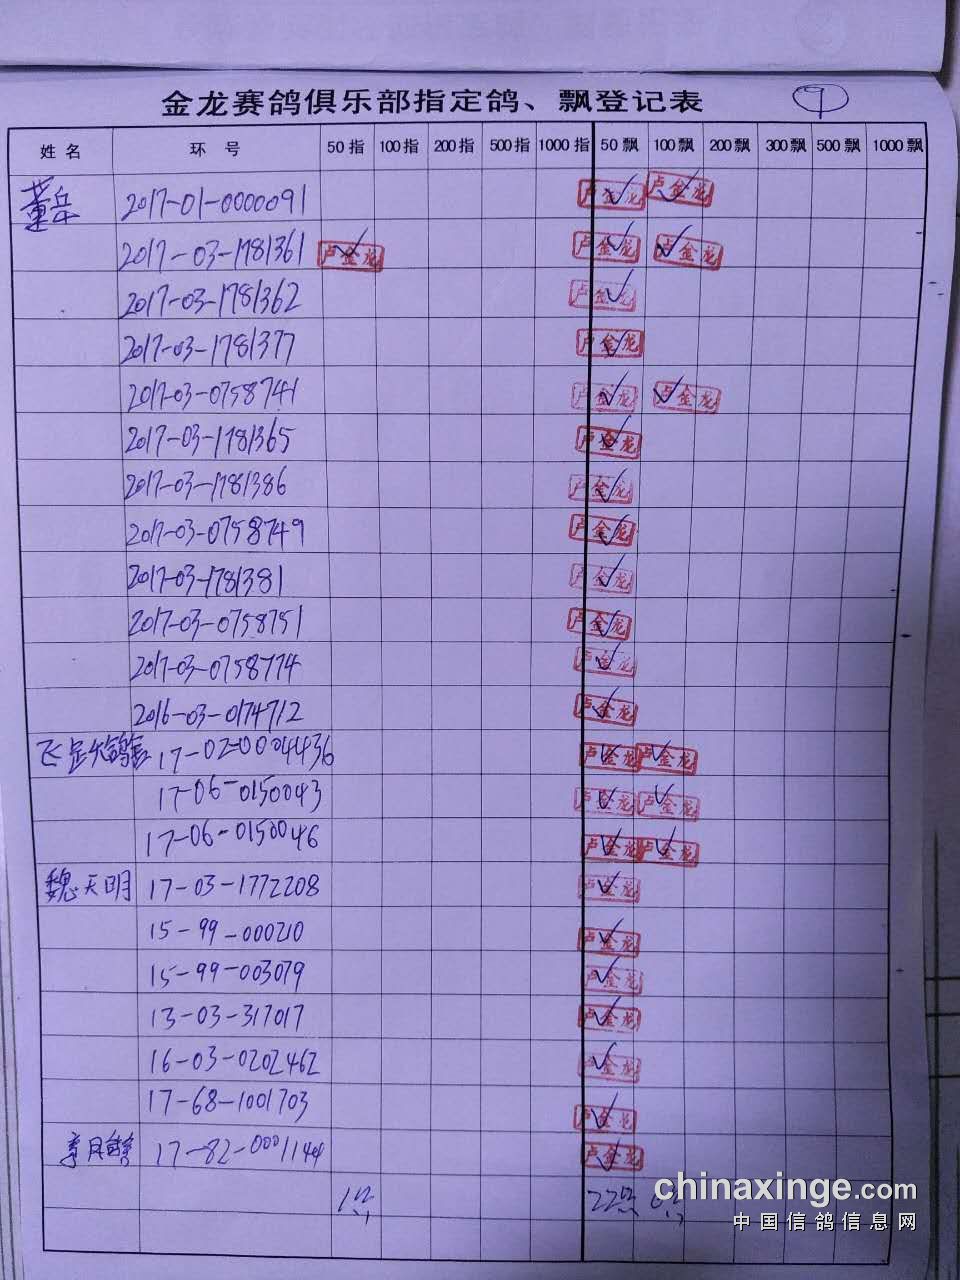 金龙赛鸽俱乐部指定鸽、飘登记表
姓名 环号 50指 100指 200指 500指 1000指 50飘 100飘 200飘 300飘 500飘 1000飘
董岳 2017-01-0000091 卢金龙 卢金龙
2017-03-1781361 卢金龙 卢金龙 卢金龙
2017-03-1781362 卢金龙
2017-03-1781377 卢金龙
2017-03-0758741 卢金龙 卢金龙
2017-03-1781365 卢金龙
2017-03-1781386 卢金龙
2017-03-0758749 卢金龙
2017-03-1781381 卢金龙
2017-03-0758751 卢金龙
2017-03-0758774 卢金龙
2016-03-0174712 卢金龙
17-02-0004436 卢金龙 卢金龙
17-06-0150043 卢金龙 卢金龙
17-06-0150046 卢金龙 卢金龙
魏天明 17-03-1772208 卢金龙
15-99-000210 卢金龙
15-99-003079 卢金龙
13-03-317017 卢金龙
16-03-0202462 卢金龙
17-68-1001703 卢金龙
17-82-0001144 卢金龙
1 22 6
chinaxinge.com
中国信鸽信息网